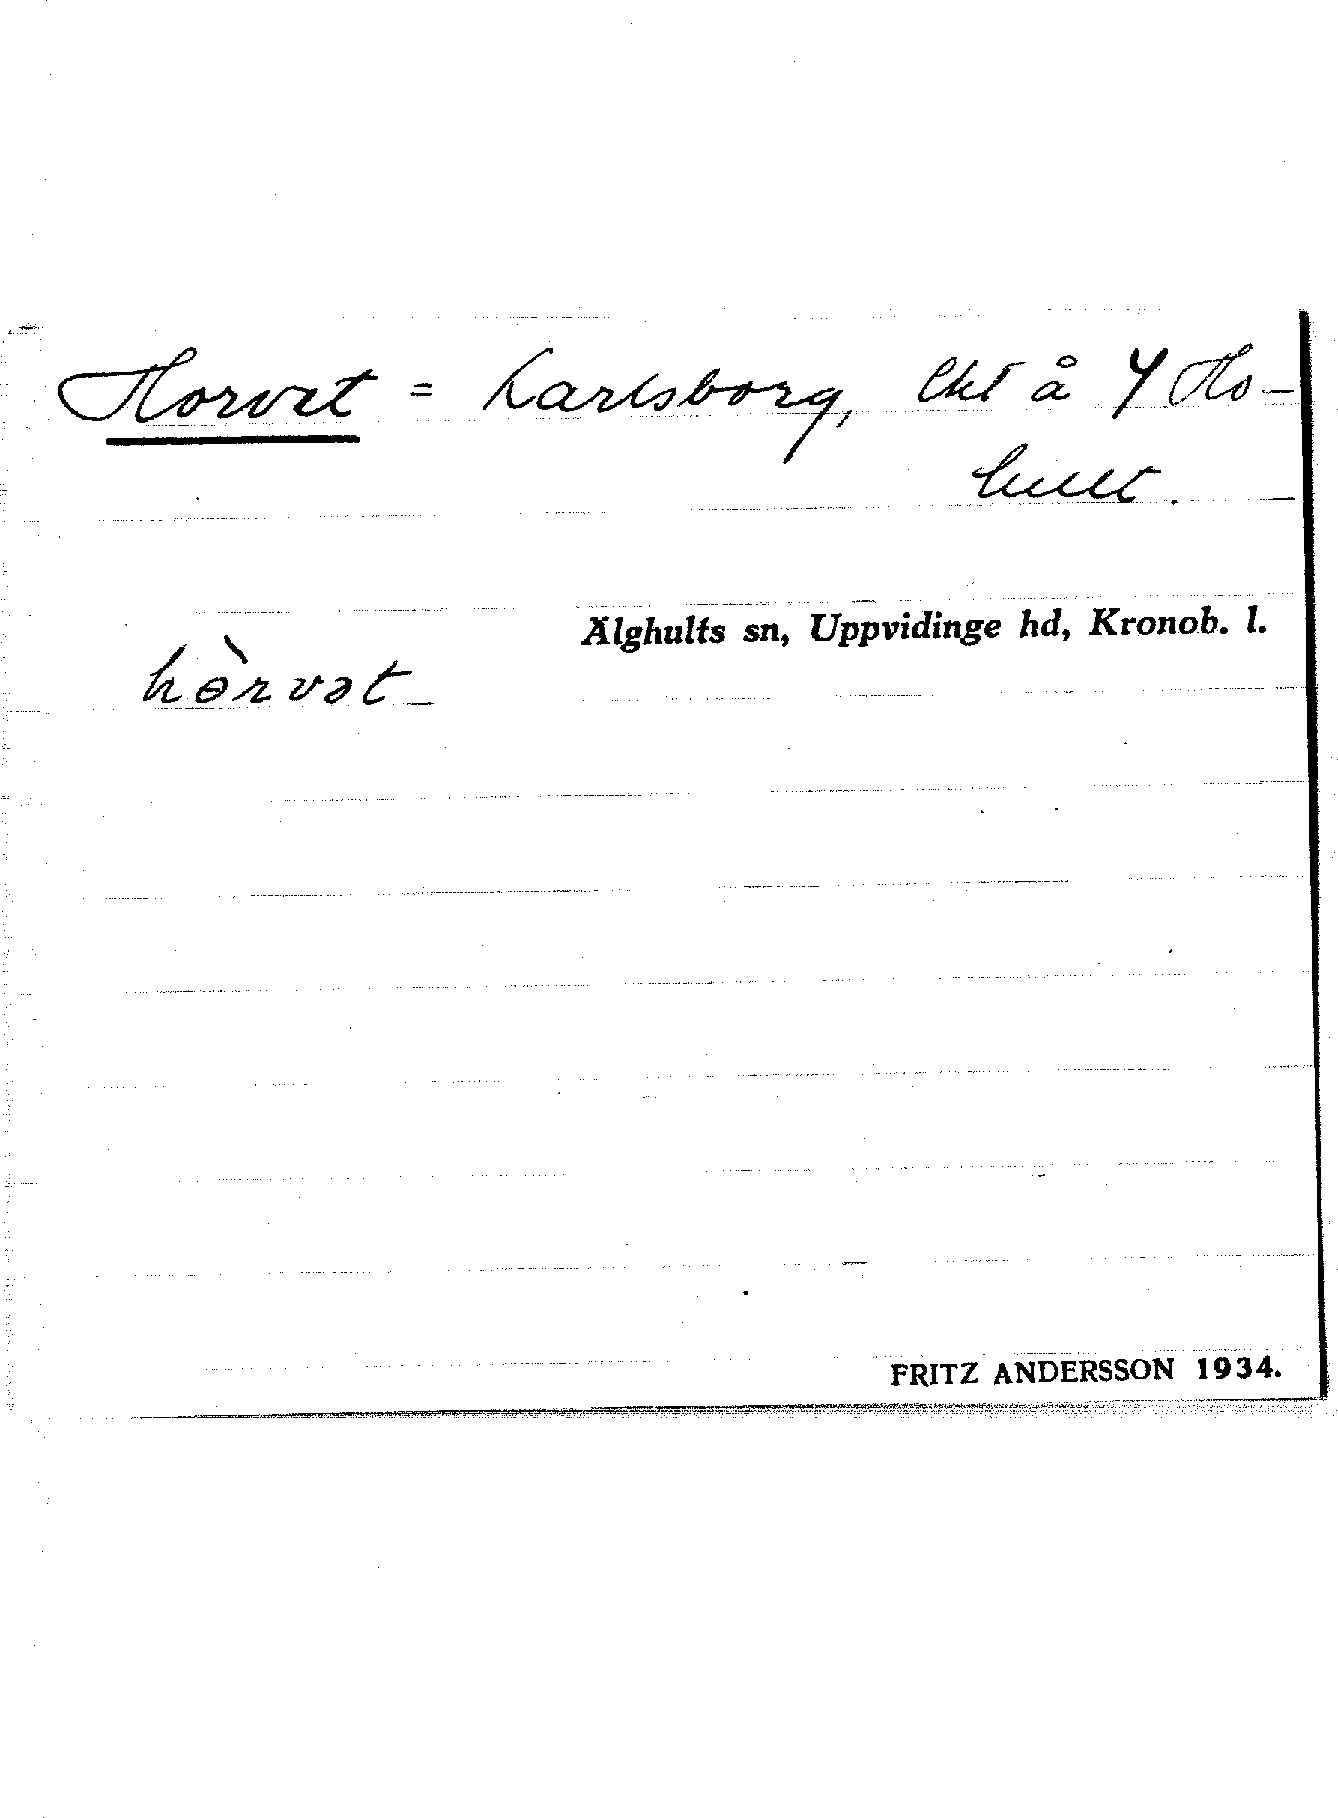 Horvet = Karlsborg, lht å Y Ho-
hult.
Älghults sn, Uppvidinge hd, Kronob. l.
hòrvət
FRITZ ANDERSSON 1934.